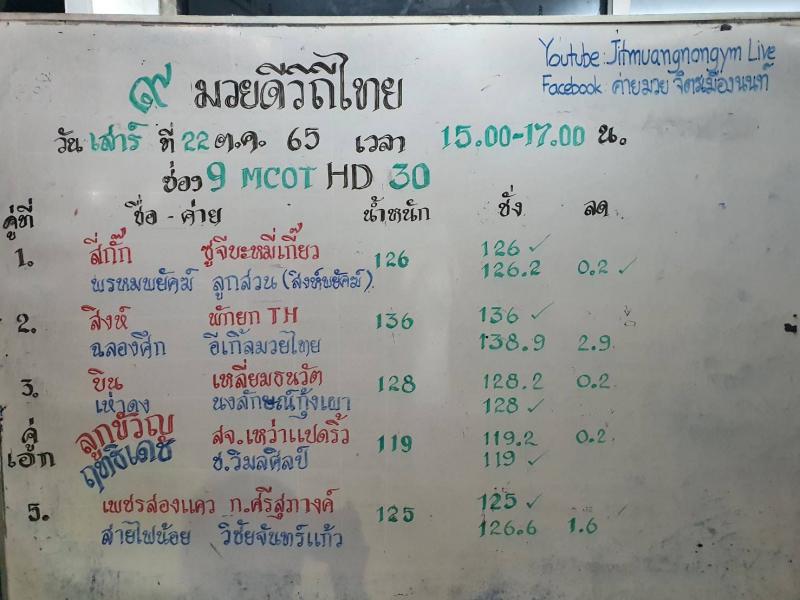 Youtube: Jitmuangnongym Live
Facebook: ค่ายมวย จิตรเมืองนนท์
๙ มวยดีวิถีไทย
วัน เสาร์ ที่ 22 ต.ค. 65 เวลา 15.00-17.00 น.
ช่อง 9 MCOT HD 30
คู่ที่ ชื่อ - ค่าย น้ำหนัก ชั่ง ลด
1. สี่กั๊ก ซูจีบะหมี่เกี๊ยว 126 126 ✓
พรหมพยัคฆ์ ลูกสวน (สิงห์พยัคฆ์) 126.2 0.2 ✓
2. สิงห์ พักยก TH 136 136 ✓
ฉลองศึก อีเกิ้ลมวยไทย 138.9 2.9
3. บิน เหลี่ยมธนวัต 128 128.2 0.2
เห่าดง นงลักษณ์กุ้งเผา 128 ✓
คู่เอก ลูกขวัญ สจ.เหว่าแปดริ้ว 119 119.2 0.2
ฤทธิเดช ช.วิมลศิลป์ 119 ✓
5. เพชรสองแคว ก.ศรีสุภางค์ 125 125 ✓
สายไฟน้อย วิชัยจันทร์แก้ว 126.6 1.6